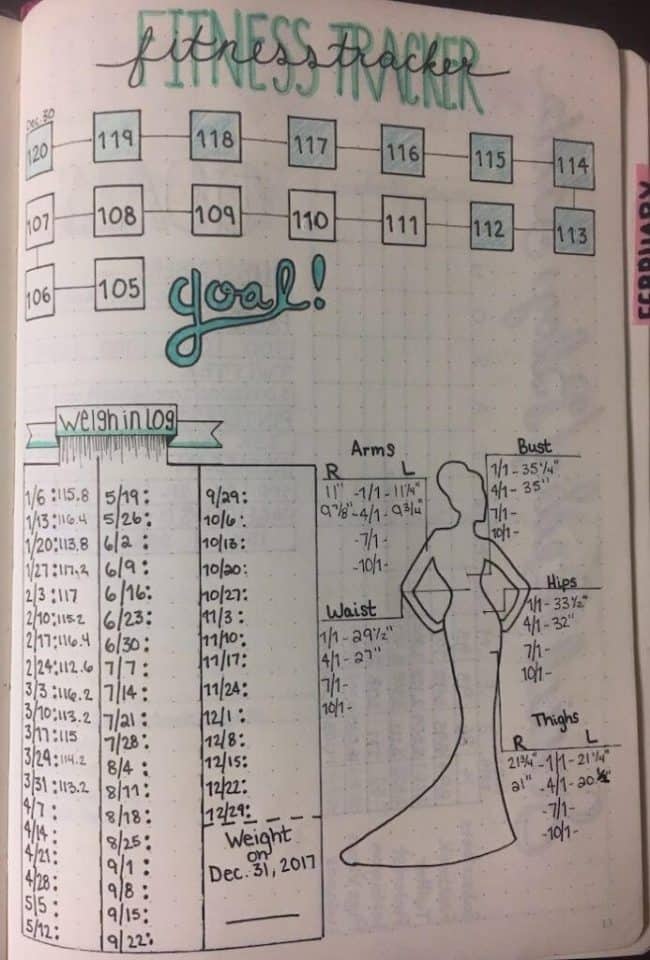 FITNESS TRACKER
fitness tracker
Dec. 30
120 119 118 117 116 115 114
107 108 109 110 111 112 113
106 105 goal!
FEBRUARY
Weigh in log
1/6:115.8
1/13:116.4
1/20:113.8
1/27:117.2
2/3:117
2/10:115.2
2/17:116.4
2/24:112.6
3/3:116.2
3/10:113.2
3/17:115
3/24:114.2
3/31:113.2
4/7:
4/14:
4/21:
4/28:
5/5:
5/12:
5/19:
5/26:
6/2:
6/9:
6/16:
6/23:
6/30:
7/7:
7/14:
7/21:
7/28:
8/4:
8/11:
8/18:
8/25:
9/1:
9/8:
9/15:
9/22:
9/29:
10/6:
10/13:
10/20:
10/27:
11/3:
11/10:
11/17:
11/24:
12/1:
12/8:
12/15:
12/22:
12/29:
Weight
on
Dec. 31, 2017
Arms
R L
11" -1/1- 11 1/4"
9 7/8" -4/1- 9 3/4"
-7/1-
-10/1-
Bust
1/1- 35 1/4"
4/1- 35"
7/1-
10/1-
Waist
1/1- 29 1/2"
4/1- 27"
7/1-
10/1-
Hips
1/1- 33 1/2"
4/1- 32"
7/1-
10/1-
Thighs
R L
21 3/4" -1/1- 21 1/4"
21" -4/1- 20
-7/1-
-10/1-